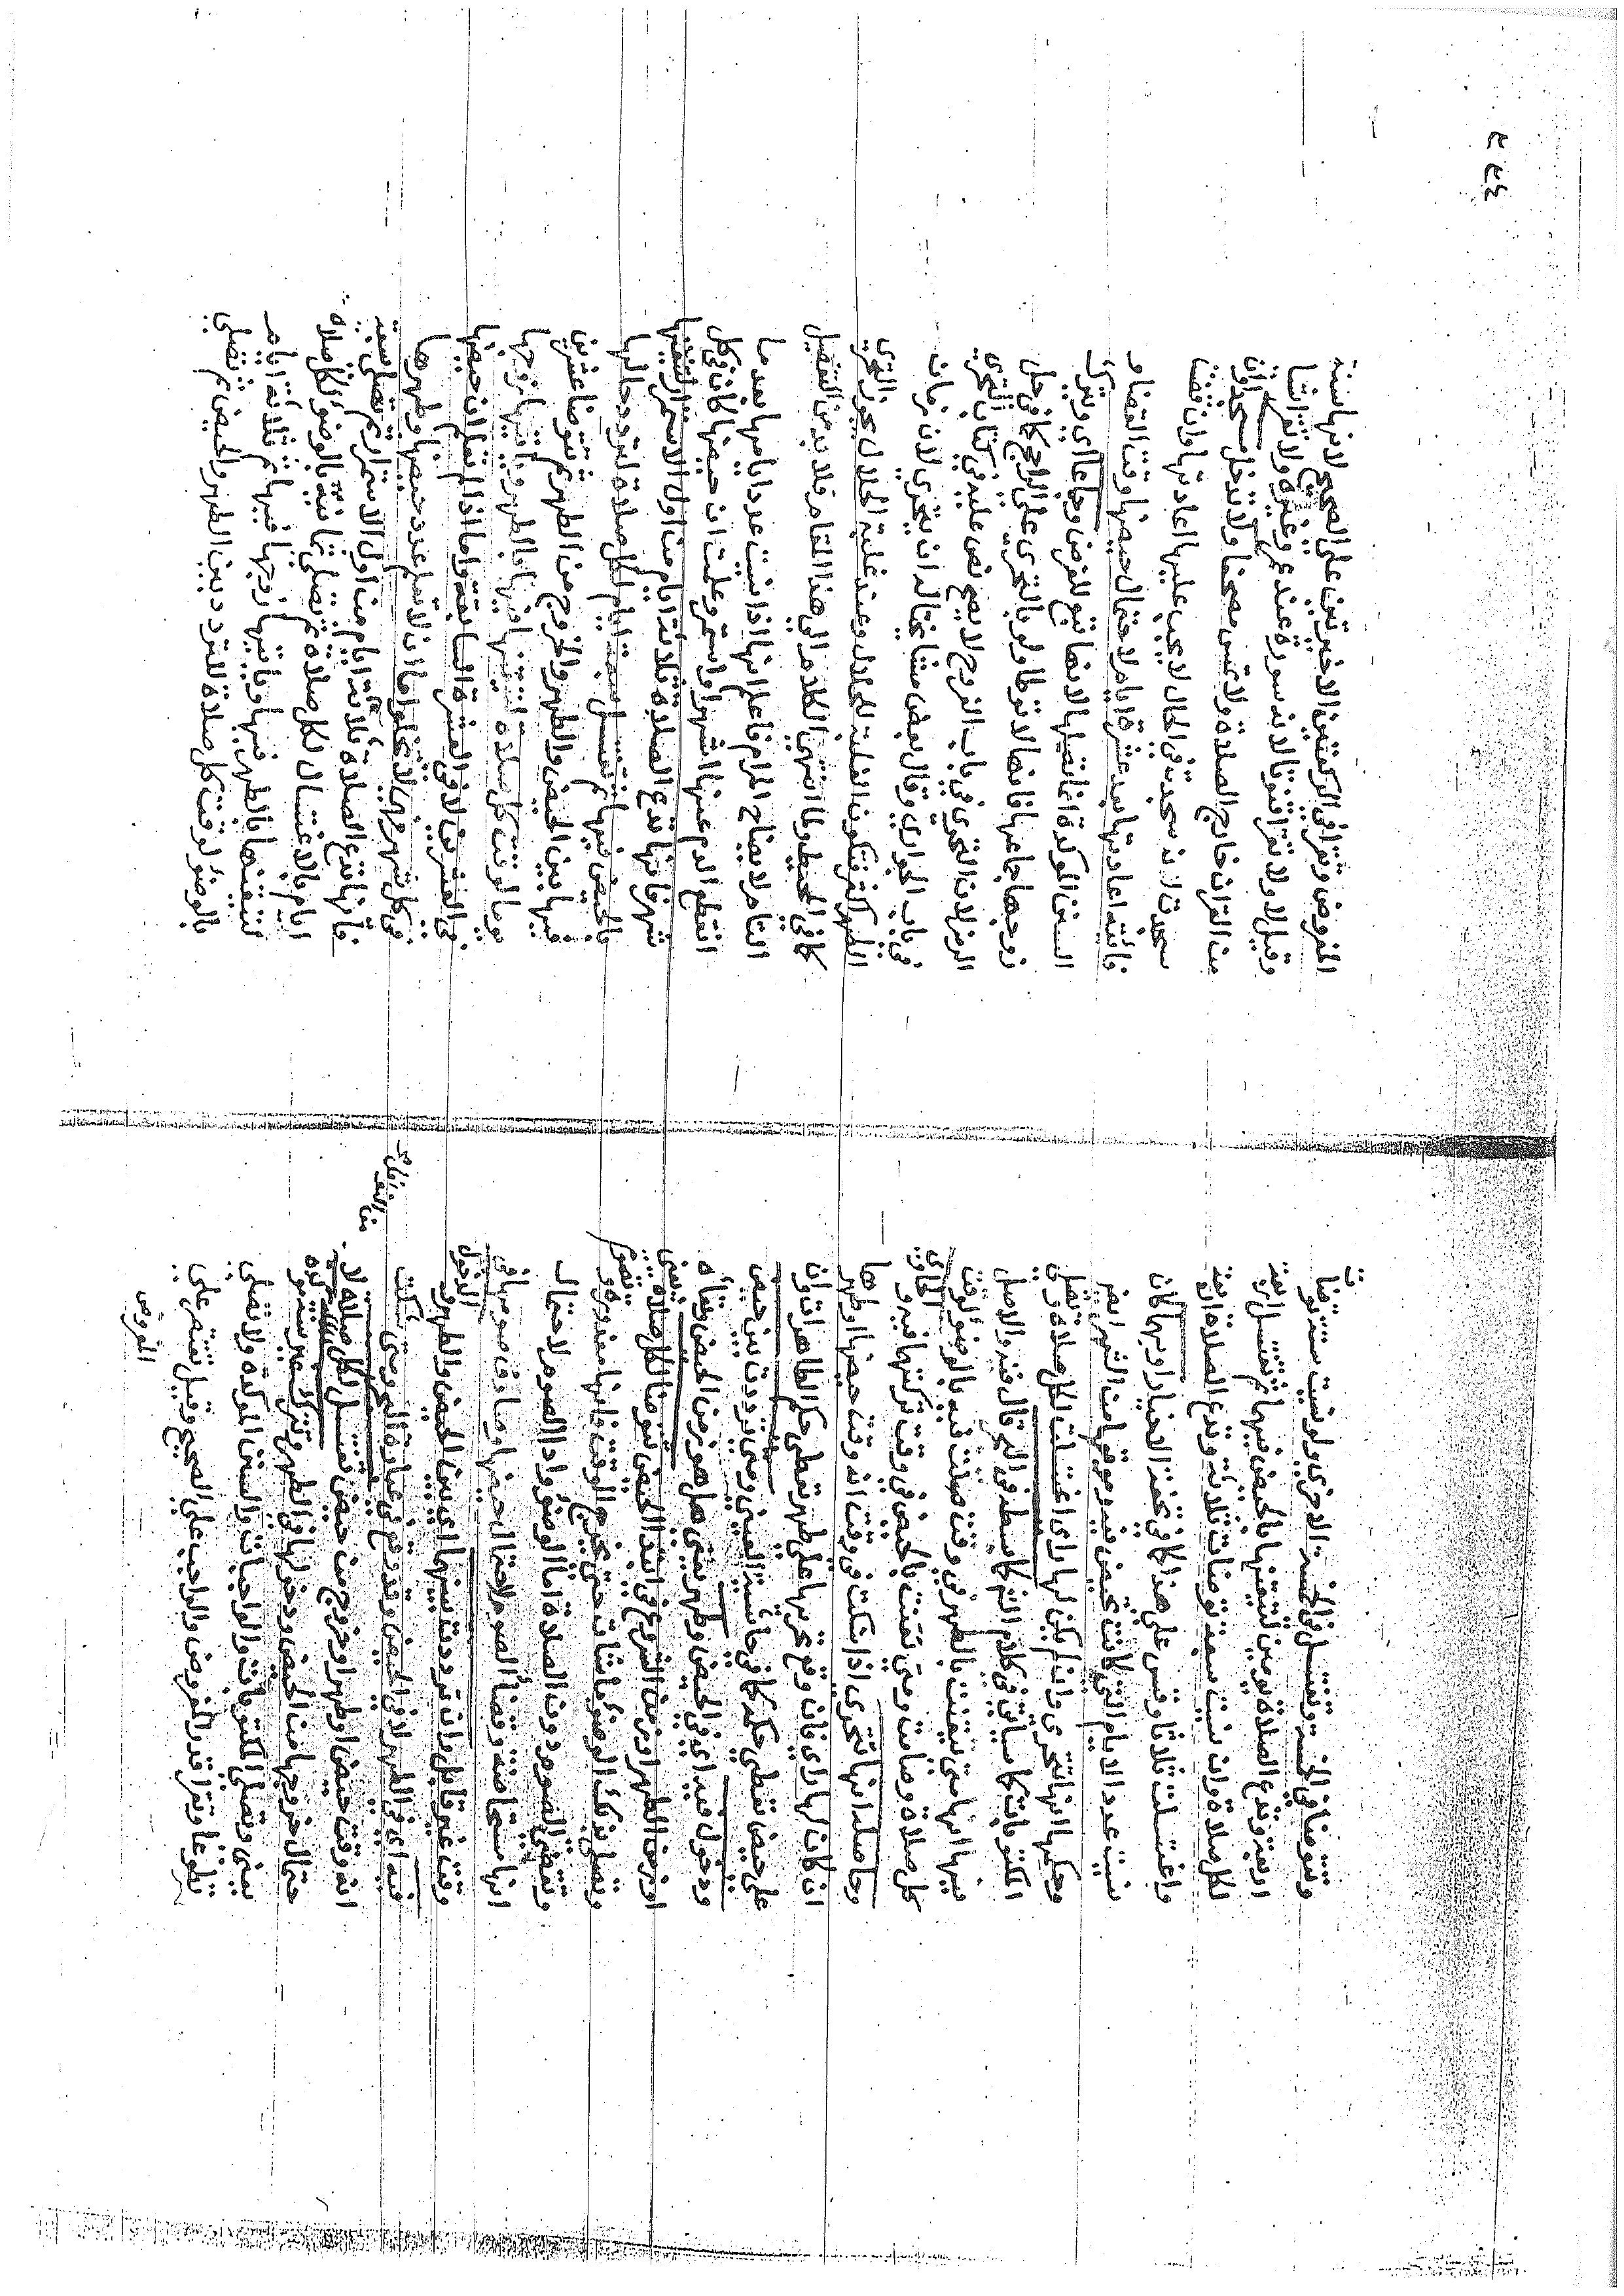 وتتوضا في الخمسة وتغتسل في الخمسة الاخري ولو نسيت ستة توضات
اربعة وتدع الصلاة يومين لتيقنها بالحيض فيهما ثم تغتسل اربعة
لكل صلاة وان نسيت سبعة توضات ثلاثة وتدع الصلاة اربعة
واغتسلت ثلاثا وقس علي هذا كما في تحفة الاخيار او بهما كان
نسيت عدد الايام التي كانت تحيض فيه وموقعها من الشهر ايض
وحكمها انها تتحري وان لم يكن لها راي اغتسلت لكل صلاة وتصلي
المكتوبات كما سياتي في كلام الش كما بسطه في البحر قال فيه والاصل
فيها انها متي تيقنت بالطهر في وقت صلت فيه بالوضوء لوقت
كل صلاة وصامت ومتي تيقنت بالحيض في وقت تركتهما فيه
وحاصله انها تتحري اذا شكت في وقت انه وقت حيضها او طهرها
ان كان لها راي فان وقع تحريها علي طهر تعطي حكم الطاهرات وان
علي حيض تعطي حكمه كما في حاشية المفتي ومتي ترددت بين حيض
ودخول فيه اي في الحيض وطهر يعني هل هو زمن الحيض وبقاه
او زمن الطهر او زمن الشروع في ابتدا الحيض تتوضا لكل صلاة يعني
وتصلي بذلك الوضوء ما شاءت حتي يخرج الوقت فانها معذورة وتصوم
وتقضي الصوم دون الصلاة اما الوضوء واداء الصوم لاحتمال
انها مستحاضة وقضاء الصوم لاحتمال حيضها وصادف صومها في
وقت غير قابل وان ترددت بينهما اي بين الحيض والطهر والدخول
فيه اي في الطهر لا في الحيض وقد وقع في عبارة البحر ومتي شكت
انه وقت حيض او طهر او خروج من حيض تغتسل لكل صلاة لا
حتمال خروجها من الحيض ودخولها في الطهر وتترك غير مؤكدة
من النوافل
يعني وتصلي المكتوبات والواجبات والسنن المؤكدة ولا تصلي
تطوعا وتقرا قدر المفروض والواجب علي الصحيح وقيل تقتصر علي
المفروض
المفروض وتقرا في الركعتين الاخيرتين علي الصحيح لانها سنة
وقيل لا ولا تقرا قنوتا لانه سورة عند عمر وغيره ولا تقرا شيا
من القران خارج الصلاة ولا تمس مصحفا ولا تدخل مسجدا وان
سجدت اية سجدة في الحال لا يجب عليها اعادتها وان قضت
فائتة اعادتها بعد عشرة ايام لاحتمال حيضها وقت القضاء و
السنن المؤكدة انما تصليها لانها تبع للفرض وجماعا اي وتترك
زوجها جماعها فانها لا توطا ولو بالتحري علي الراجح كما في حل
الرمز لان التحري في باب الفروج لا يصح نص عليه في كتاب التحري
في باب الجواري وقال بعض مشايخنا له ان يتحري لان زمان
الطهر اكثر فتكون الغلبة للحلال وعند غلبة الحلال يجوز التحري
كما في المحيط ولما انتهي الكلام الي هذا المقام فلا بد من التفصيل
التام لايضاح المرام فاعلم انها اذا نسيت عدد ايامها بعد ما
انقطع الدم عنها اشهرا واستمر وعلمت ان حيضها كان في كل
شهر فانها تدع الصلاة ثلاثة ايام من اول الاستمرار لتيقنها
بالحيض فيها ثم تغتسل سبعة ايام لكل صلاة لتردد حالها
فيها بين الحيض والطهر والخروج من الطهر ثم تتوضا عشرين
يوما لوقت كل صلاة لتيقنها فيها بالطهر وياتيها زوجها
في العشرين لا في العشرة السابقة واما اذا لم تعلم ان حيضها
في كل شهر مرة فلا تخلو اما ان لا تعلم عدد حيضها وطهرها
فانها تدع الصلاة ثلاثة ايام من اول الاستمرار ثم تصلي سبعة
ايام بالاغتسال لكل صلاة ثم تصلي ثمانية بالوضوء لكل صلاة
لتيقنها بالطهر فيها وياتيها زوجها فيها ثم ثلاثة ايام
بالوضوء لوقت كل صلاة للتردد بين الطهر والحيض ثم تصلي